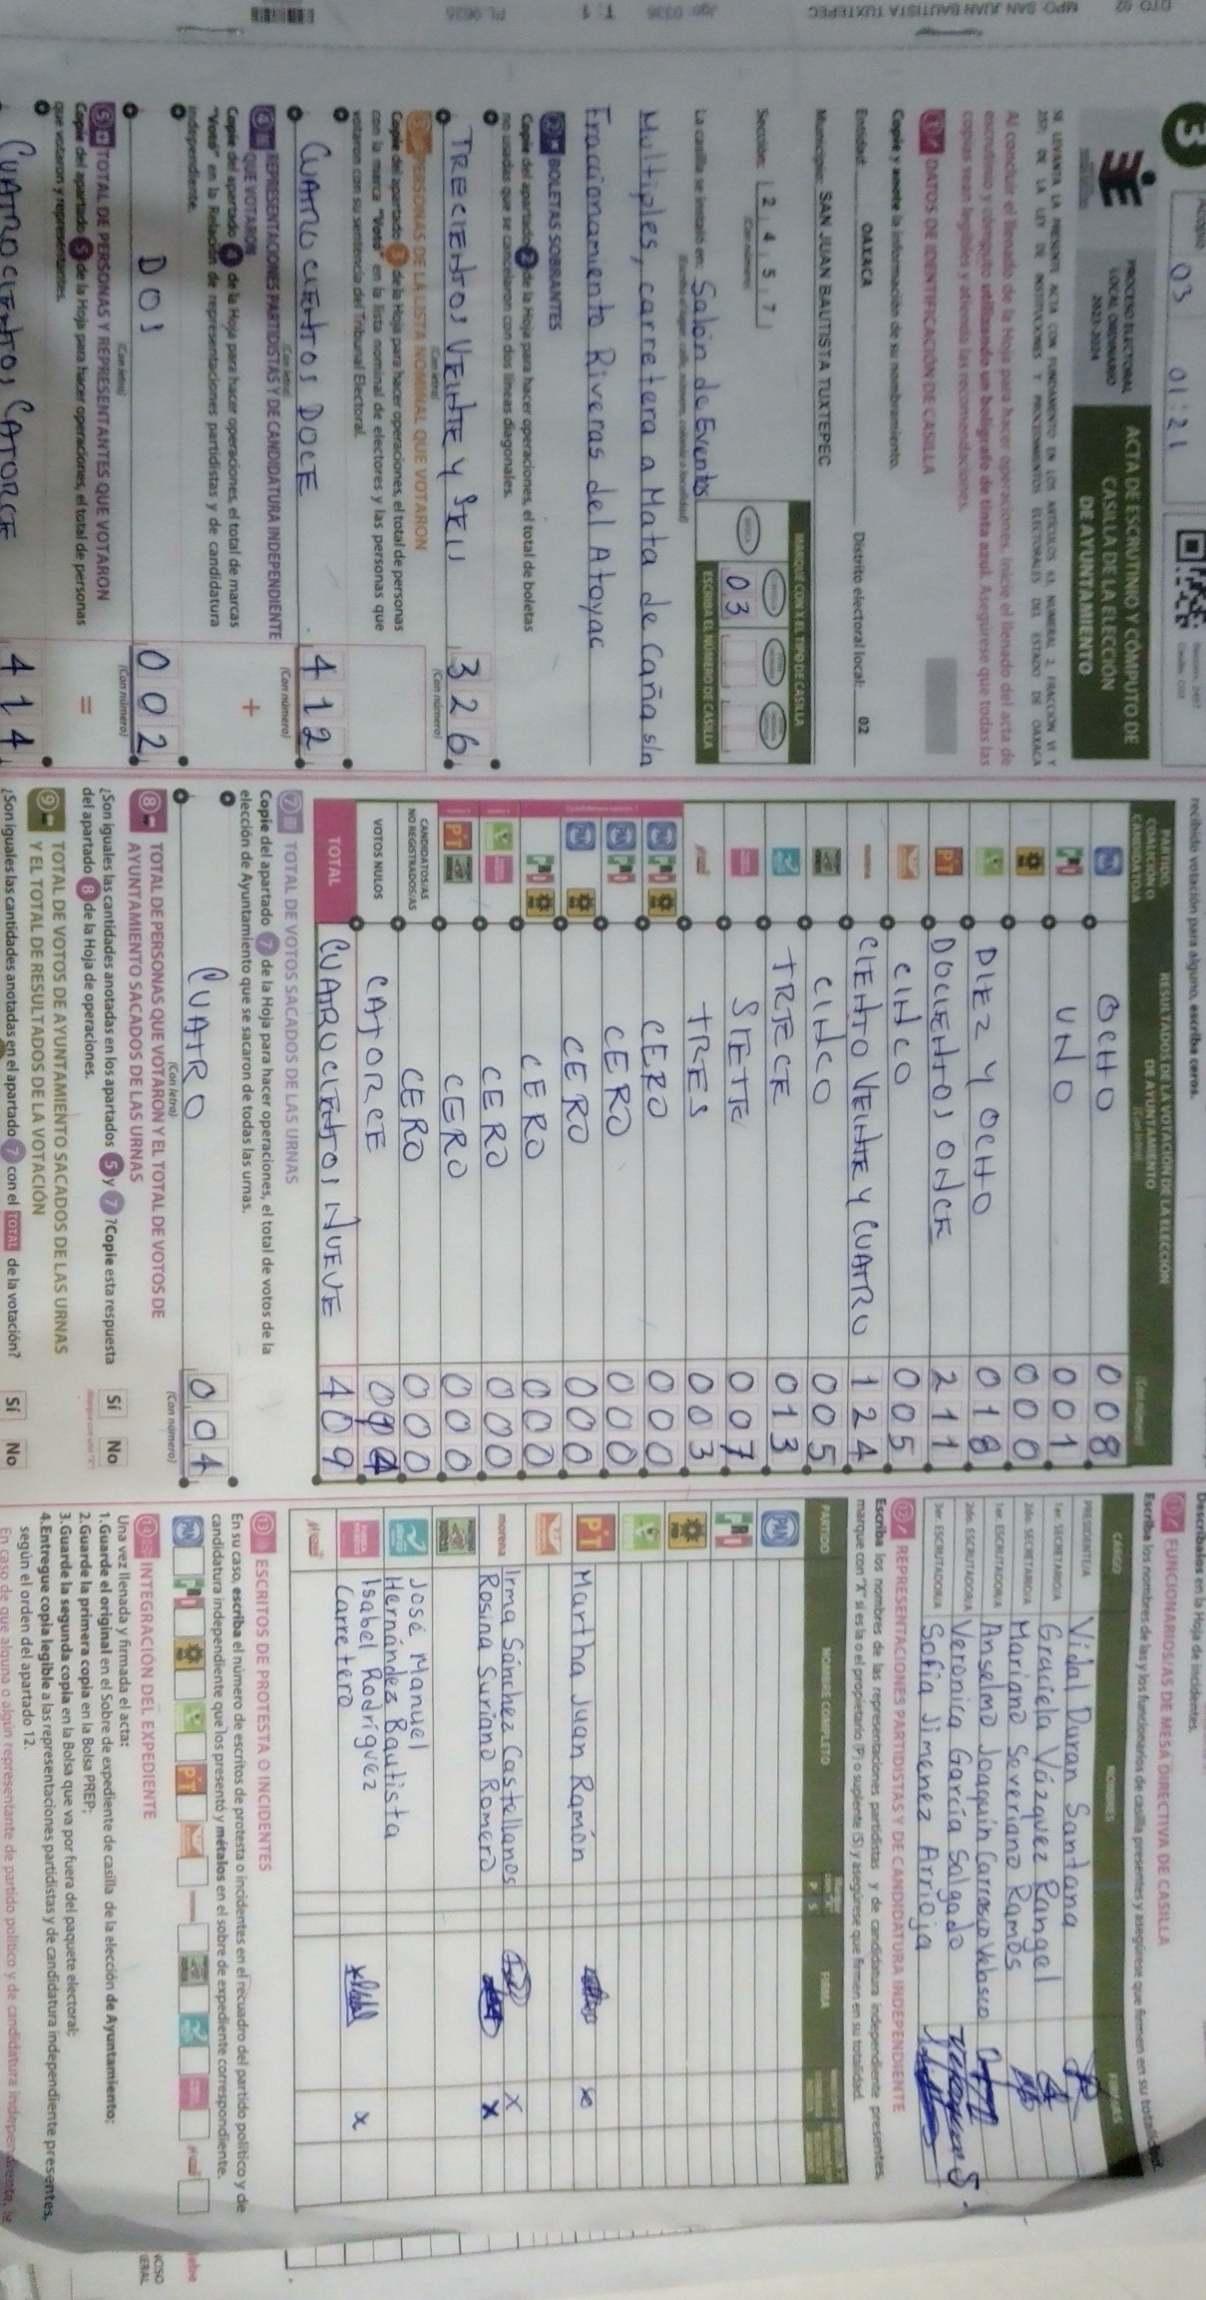 3
03 01:21
PROCESO ELECTORAL
LOCAL ORDINARIO
2023-2024
ACTA DE ESCRUTINIO Y CÓMPUTO DE
CASILLA DE LA ELECCIÓN
DE AYUNTAMIENTO
SE LEVANTA LA PRESENTE ACTA CON FUNDAMENTO EN LOS ARTÍCULOS 63, NUMERAL 2, FRACCIÓN VI Y
237; DE LA LEY DE INSTITUCIONES Y PROCEDIMIENTOS ELECTORALES DEL ESTADO DE OAXACA
Al concluir el llenado de la Hoja para hacer operaciones, inicie el llenado del acta de
escrutinio y cómputo utilizando un bolígrafo de tinta azul. Asegúrese que todas las
copias sean legibles y atienda las recomendaciones.
1 DATOS DE IDENTIFICACIÓN DE CASILLA
Copie y anote la información de su nombramiento.
Entidad: OAXACA Distrito electoral local: 02
Municipio: SAN JUAN BAUTISTA TUXTEPEC
Sección: 2 4 5 7
(Con número)
MARQUE CON X EL TIPO DE CASILLA
03
ESCRIBA EL NÚMERO DE CASILLA
La casilla se instaló en: Salón de Eventos
Multiples, carretera a Mata de Caña s/n
Fraccionamiento Riveras del Atoyac
2 BOLETAS SOBRANTES
Copie del apartado 2 de la Hoja para hacer operaciones, el total de boletas
no usadas que se cancelaron con dos líneas diagonales.
TRECIENTOS VEINTE Y SEIS 326
(Con letra) (Con número)
3 PERSONAS DE LA LISTA NOMINAL QUE VOTARON
Copie del apartado 3 de la Hoja para hacer operaciones, el total de personas
con la marca "Votó" en la lista nominal de electores y las personas que
votaron con su sentencia del Tribunal Electoral.
CUATROCIENTOS DOCE 412
(Con letra) (Con número)
4 REPRESENTACIONES PARTIDISTAS Y DE CANDIDATURA INDEPENDIENTE
QUE VOTARON
+
Copie del apartado 4 de la Hoja para hacer operaciones, el total de marcas
"Votó" en la Relación de representaciones partidistas y de candidatura
independiente.
DOS 002
(Con letra) (Con número)
5 TOTAL DE PERSONAS Y REPRESENTANTES QUE VOTARON
=
Copie del apartado 5 de la Hoja para hacer operaciones, el total de personas
que votaron y representantes.
CUATROCIENTOS CATORCE 414
recibido votación para alguno, escriba ceros.
PARTIDO, COALICIÓN O CANDIDATO/A
RESULTADOS DE LA VOTACIÓN DE LA ELECCIÓN
DE AYUNTAMIENTO
(Con letra) (Con número)
PAN OCHO 008
PRI UNO 001
000
DIEZ Y OCHO 018
PT DOCIENTOS ONCE 211
CINCO 005
morena CIENTO VEINTE Y CUATRO 124
CINCO 005
TRECE 013
SIETE 007
TRES 003
PAN PRI CERO 000
PAN PRI CERO 000
PAN CERO 000
PRI CERO 000
CERO 000
PT CERO 000
CANDIDATOS/AS
NO REGISTRADOS/AS CERO 000
VOTOS NULOS CATORCE 014
TOTAL CUATROCIENTOS NUEVE 409
7 TOTAL DE VOTOS SACADOS DE LAS URNAS
Copie del apartado 7 de la Hoja para hacer operaciones, el total de votos de la
elección de Ayuntamiento que se sacaron de todas las urnas.
CUATRO 004
(Con letra) (Con número)
8 TOTAL DE PERSONAS QUE VOTARON Y EL TOTAL DE VOTOS DE
AYUNTAMIENTO SACADOS DE LAS URNAS
¿Son iguales las cantidades anotadas en los apartados 5 y 7 ?Copie esta respuesta
del apartado 8 de la Hoja de operaciones.
Sí No
9 TOTAL DE VOTOS DE AYUNTAMIENTO SACADOS DE LAS URNAS
Y EL TOTAL DE RESULTADOS DE LA VOTACIÓN
¿Son iguales las cantidades anotadas en el apartado 7 con el TOTAL de la votación? Sí No
Descríbalos en la Hoja de incidentes.
FUNCIONARIOS/AS DE MESA DIRECTIVA DE CASILLA
Escriba los nombres de las y los funcionarios de casilla presentes y asegúrese que firmen en su totalidad.
CARGO NOMBRES FIRMAS
PRESIDENTE/A Vidal Duran Santana
1er. SECRETARIO/A Graciela Vázquez Rangel
2do. SECRETARIO/A Mariano Soveriano Ramos
1er. ESCRUTADOR/A Anselmo Joaquín Carrasco Velasco
2do. ESCRUTADOR/A Veronica García Salgado
3er. ESCRUTADOR/A Sofia Jimenez Arrioja
12 REPRESENTACIONES PARTIDISTAS Y DE CANDIDATURA INDEPENDIENTE
Escriba los nombres de las representaciones partidistas y de candidatura independiente presentes,
marque con "X" si es la o el propietario (P) o suplente (S) y asegúrese que firmen en su totalidad.
PARTIDO NOMBRE COMPLETO P S FIRMA
PAN
PRI
PT Martha Juan Ramón
morena Irma Sánchez Castellanos x
Rosina Suriano Romero x
José Manuel
Hernández Bautista
Isabel Rodríguez
Carretero x
13 ESCRITOS DE PROTESTA O INCIDENTES
En su caso, escriba el número de escritos de protesta o incidentes en el recuadro del partido político y de
candidatura independiente que los presentó y métalos en el sobre de expediente correspondiente.
PAN PRI PT
14 INTEGRACIÓN DEL EXPEDIENTE
Una vez llenada y firmada el acta:
1.Guarde el original en el Sobre de expediente de casilla de la elección de Ayuntamiento;
2.Guarde la primera copia en la Bolsa PREP;
3.Guarde la segunda copia en la Bolsa que va por fuera del paquete electoral;
4.Entregue copia legible a las representaciones partidistas y de candidatura independiente presentes,
según el orden del apartado 12.
En caso de que alguna o algún representante de partido político y de candidatura independiente,
DTO 02 MPO SAN JUAN BAUTISTA TUXTEPEC